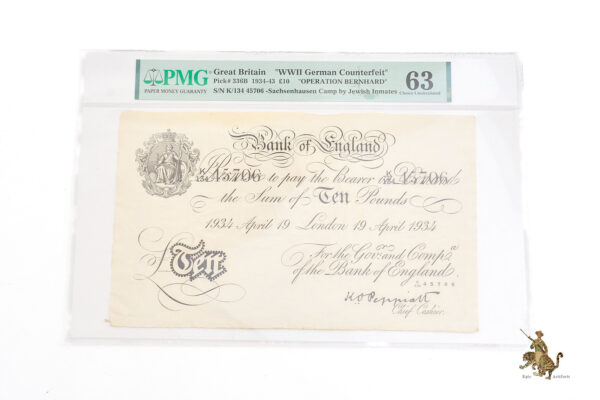 PMG
PAPER MONEY GUARANTY
Great Britain "WWII German Counterfeit"
Pick# 336B 1934-43 £10 "OPERATION BERNHARD"
S/N K/134 45706 -Sachsenhausen Camp by Jewish Inmates
63
Choice Uncirculated
Bank of England
K/134 45706 Promise to pay the Bearer on Demand K/134 45706
the Sum of Ten Pounds
1934 April 19 London 19 April 1934
For the Govr. and Compa.
of the Bank of England.
£Ten
45706
K O Peppiatt
Chief Cashier.
Epic Artifacts